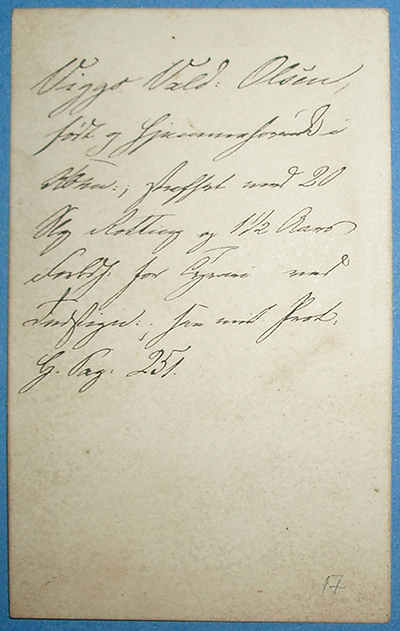 Viggo Vald: Olsen,
født og hjemmehørende i
Kbhn:, straffet med 20
Slg Rotting og 1½ Aars
Forbdh. for Tyveri ved
Indsign:, see mit Prot.
G. Pag: 251.
17